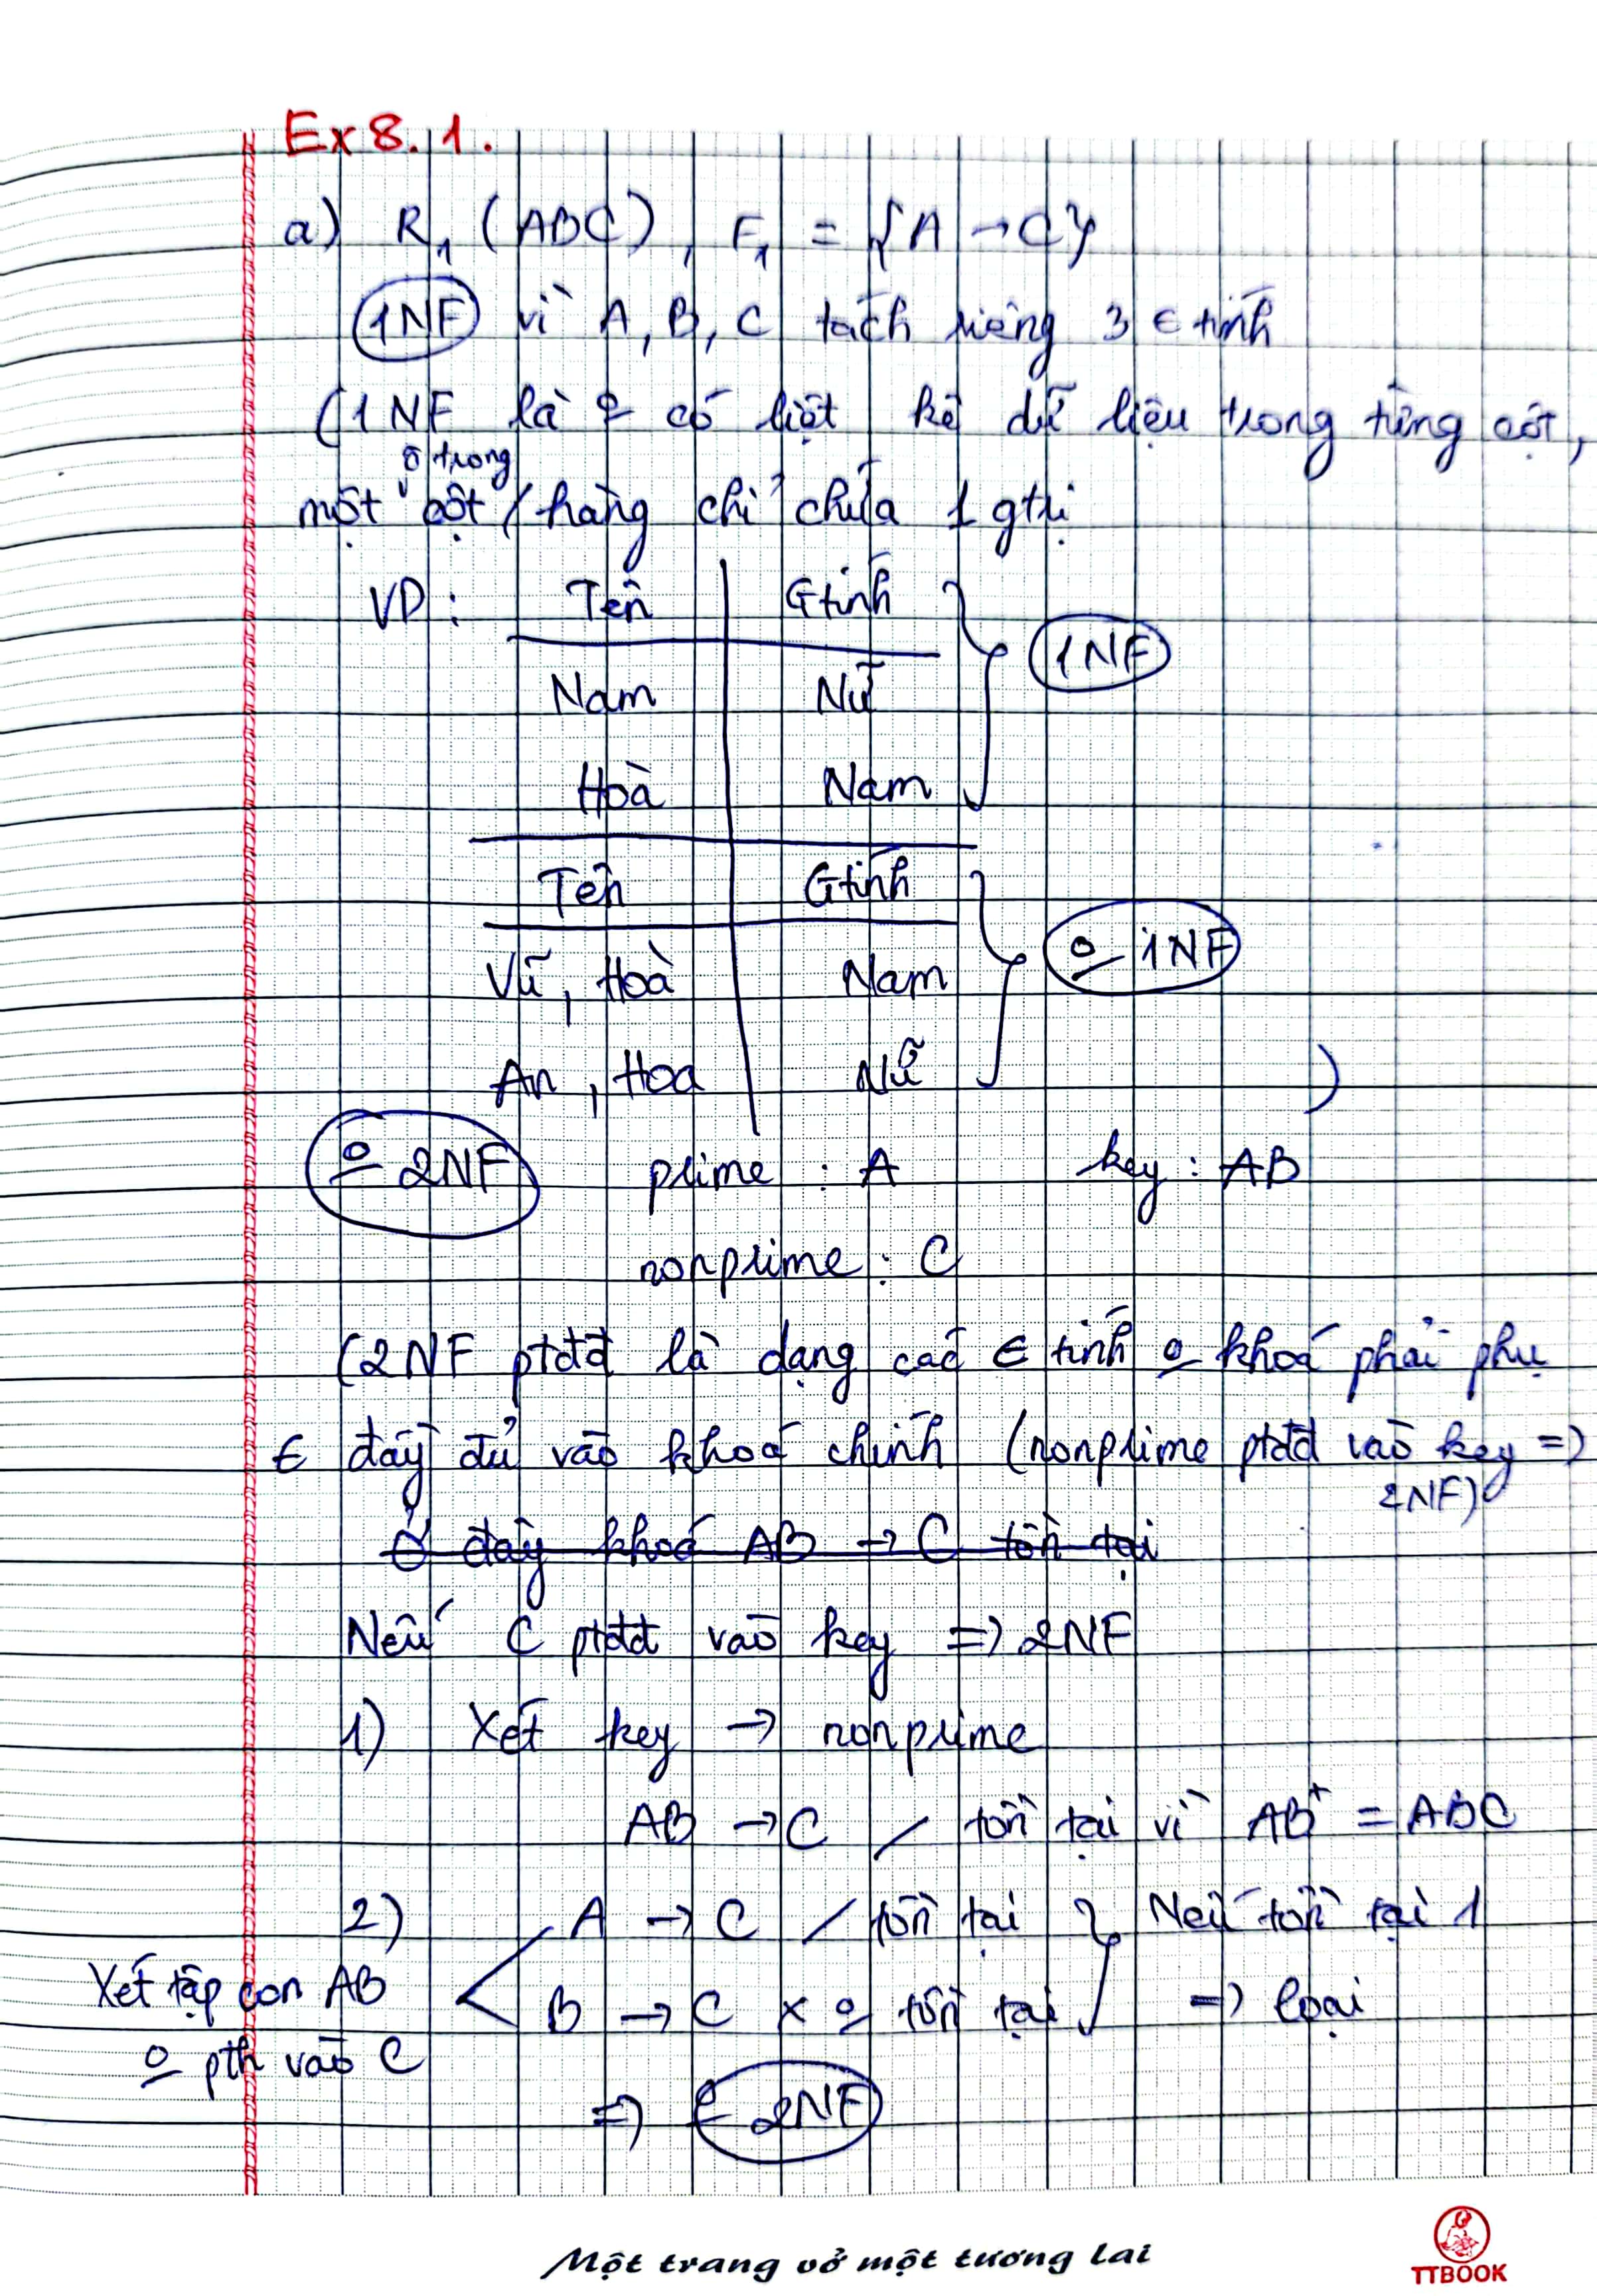 Ex 8.1.
a) R₁ (ABC), F₁ = {A → C}
1NF vì A, B, C tách riêng 3 ∈ tính
(1NF là o có liệt kê dữ liệu trong từng cột,
ô trong
một cột / hàng chỉ chứa 1 gtrị
VD: Tên Gtính
Nam Nữ
1NF
Hoà Nam
Tên Gtính
Vũ, Hoà Nam
o 1NF
An, Hoa Nữ )
o 2NF prime : A key : AB
nonprime : C
(2NF ptđđ là dạng các ∈ tính o khoá phải phụ
∈ đầy đủ vào khoá chính (nonprime ptđđ vào key =>
2NF)
Ở đây khoá AB → C tồn tại
Nếu C ptđđ vào key => 2NF
1) Xét key → nonprime
AB → C / tồn tại vì AB⁺ = ABC
2) A → C / tồn tại } Nếu tồn tại 1
Xét tập con AB B → C x o tồn tại => loại
o pth vào C
=> o 2NF
Một trang vở một tương lai
TTBOOK